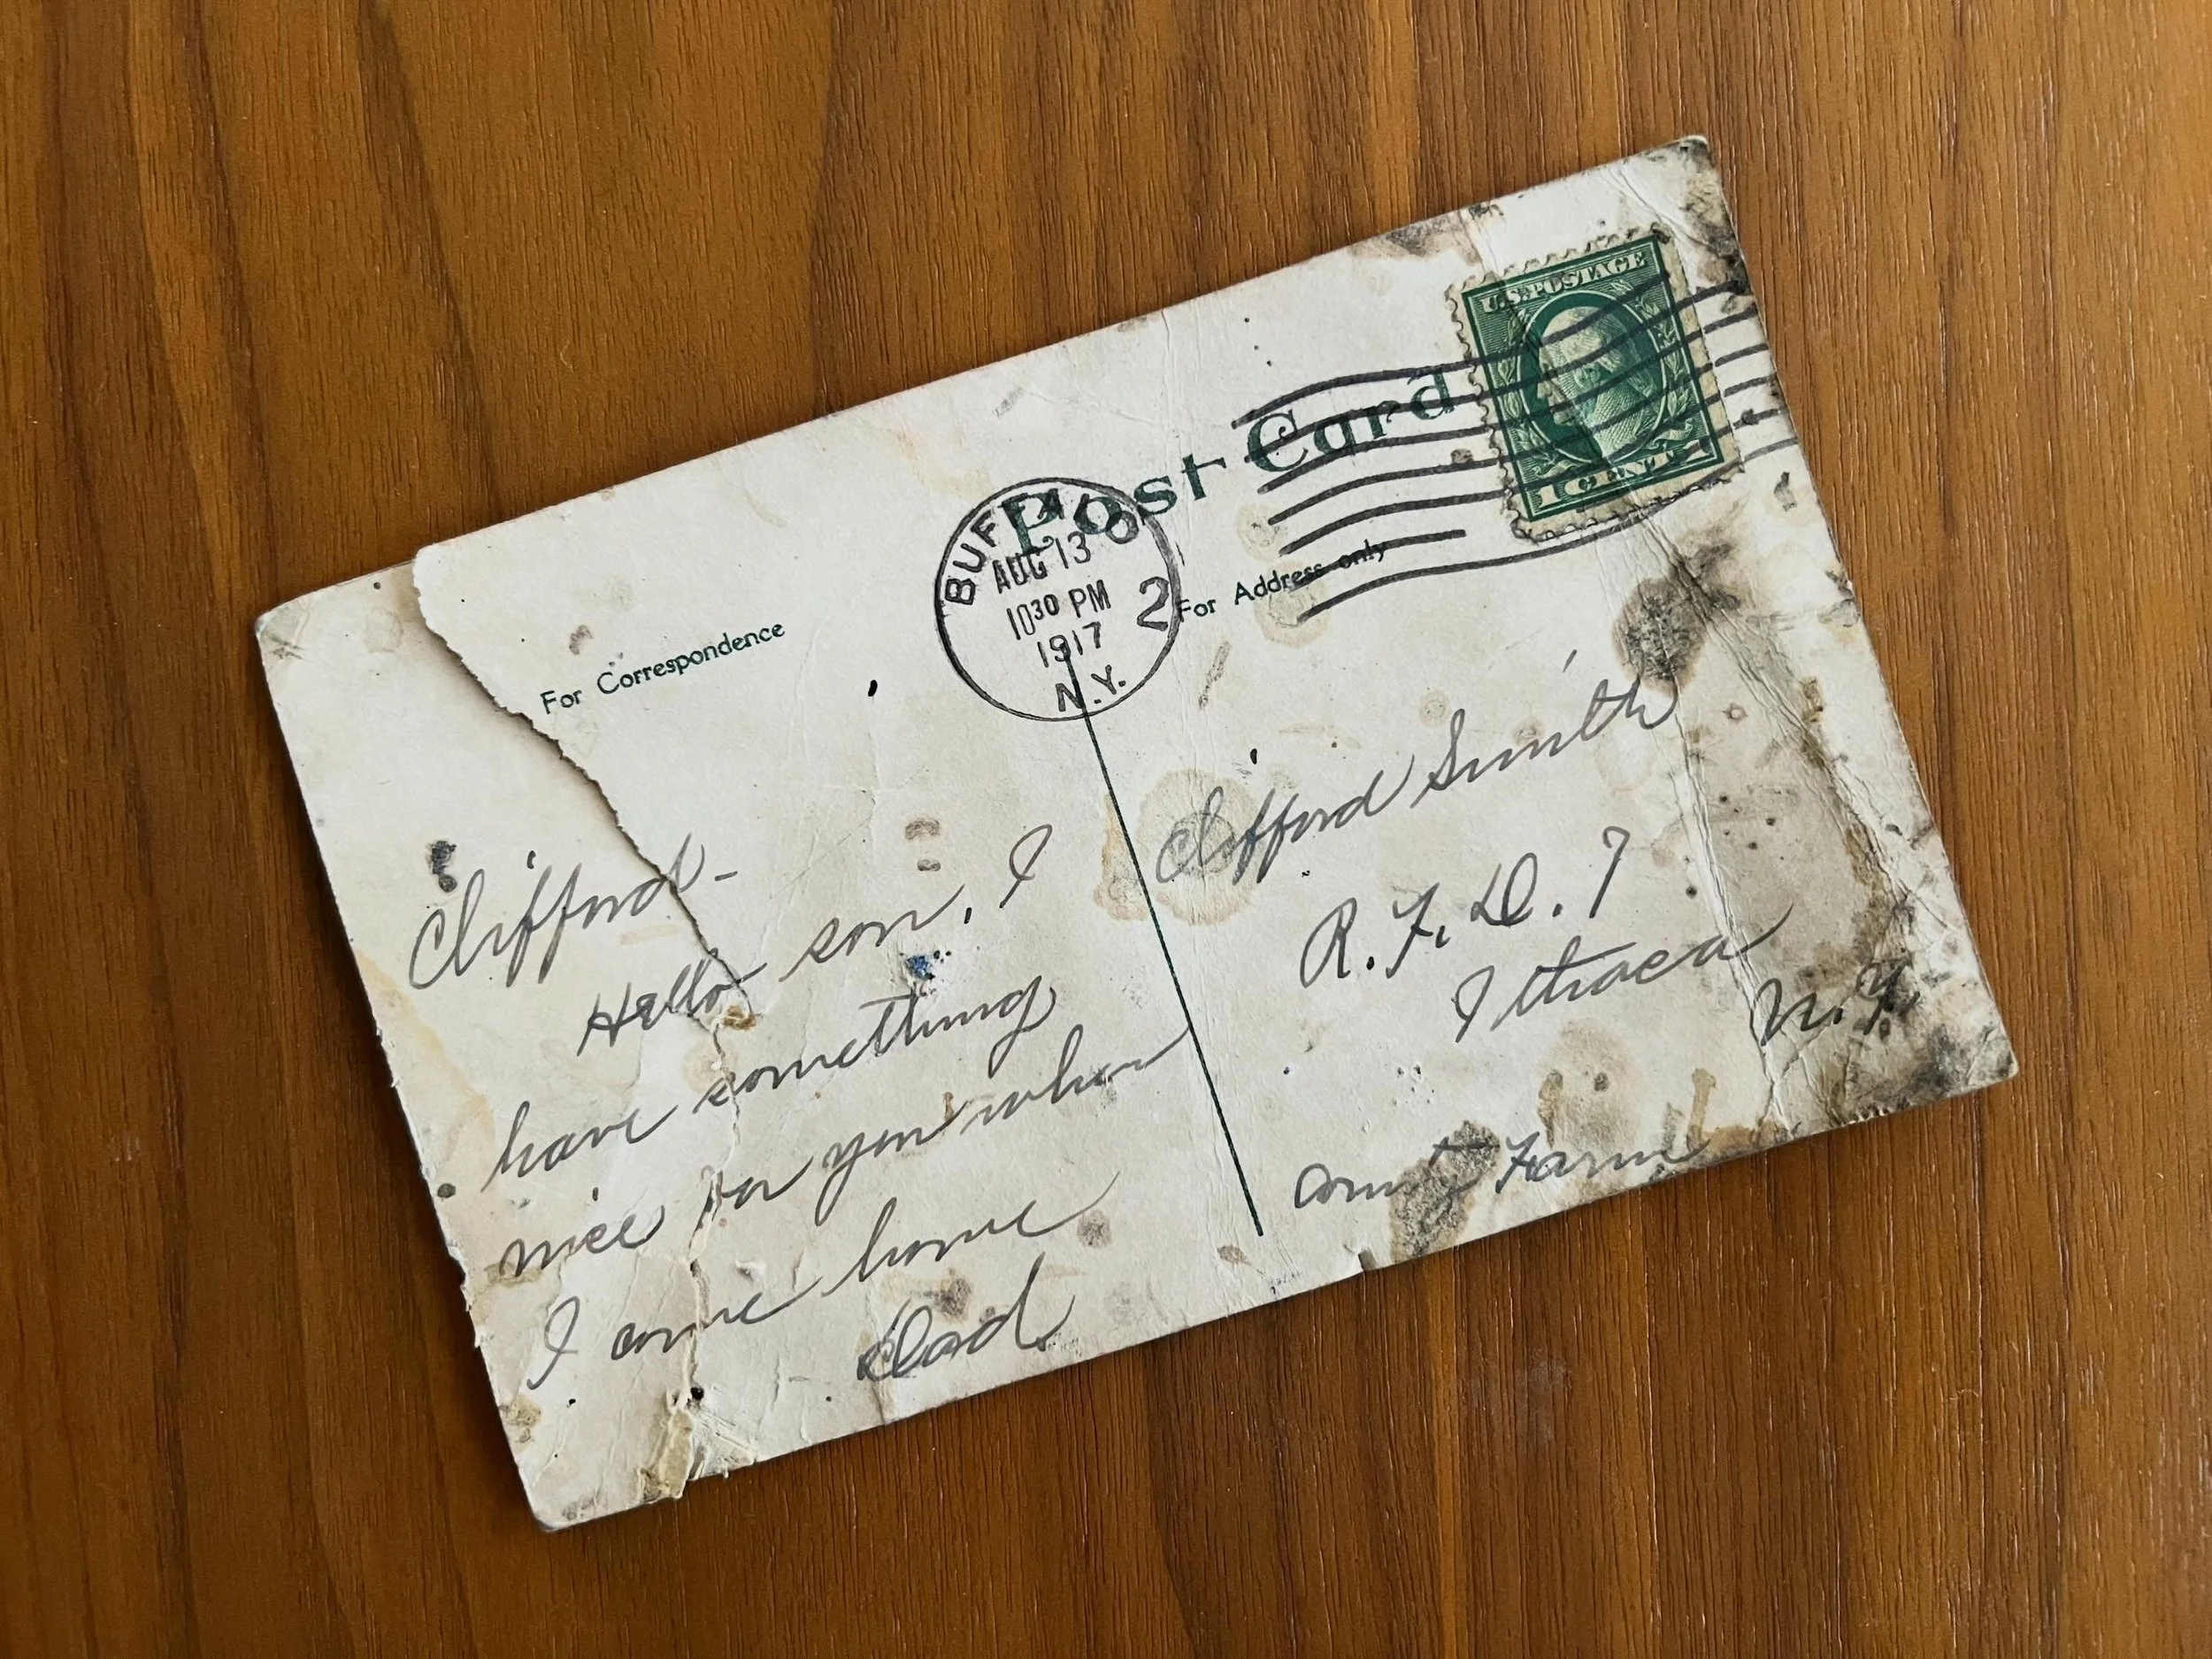 Post Card
U.S. POSTAGE
1 CENT 1
BUFFALO
AUG 13
10 30 PM
1917
N.Y.
2
For Correspondence
For Address only
Clifford -
Hello son, I
have something
nice for you when
I come home
Dad.
Clifford Smith
R.F.D. 7
Ithaca
N.Y.
County Farm